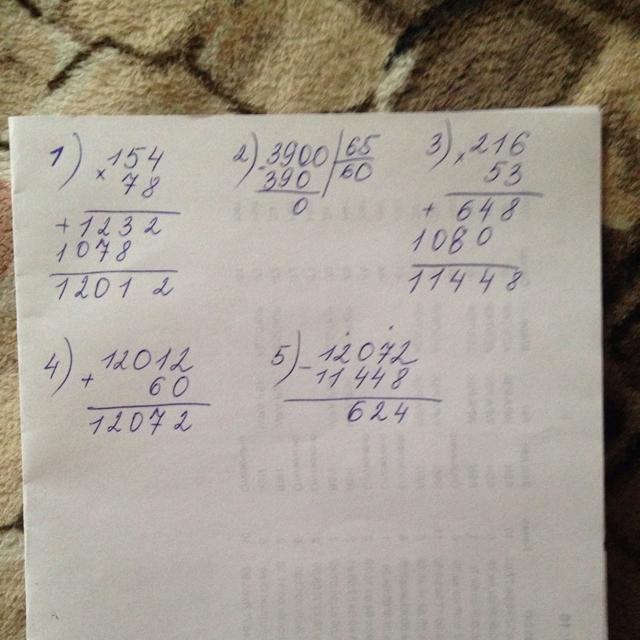 1) × 154
78
+ 1232
1078
12012
2) - 3900 | 65
390 | 60
0
3) × 216
53
+ 648
1080
11448
4) + 12012
60
12072
5) - 12072
11448
624